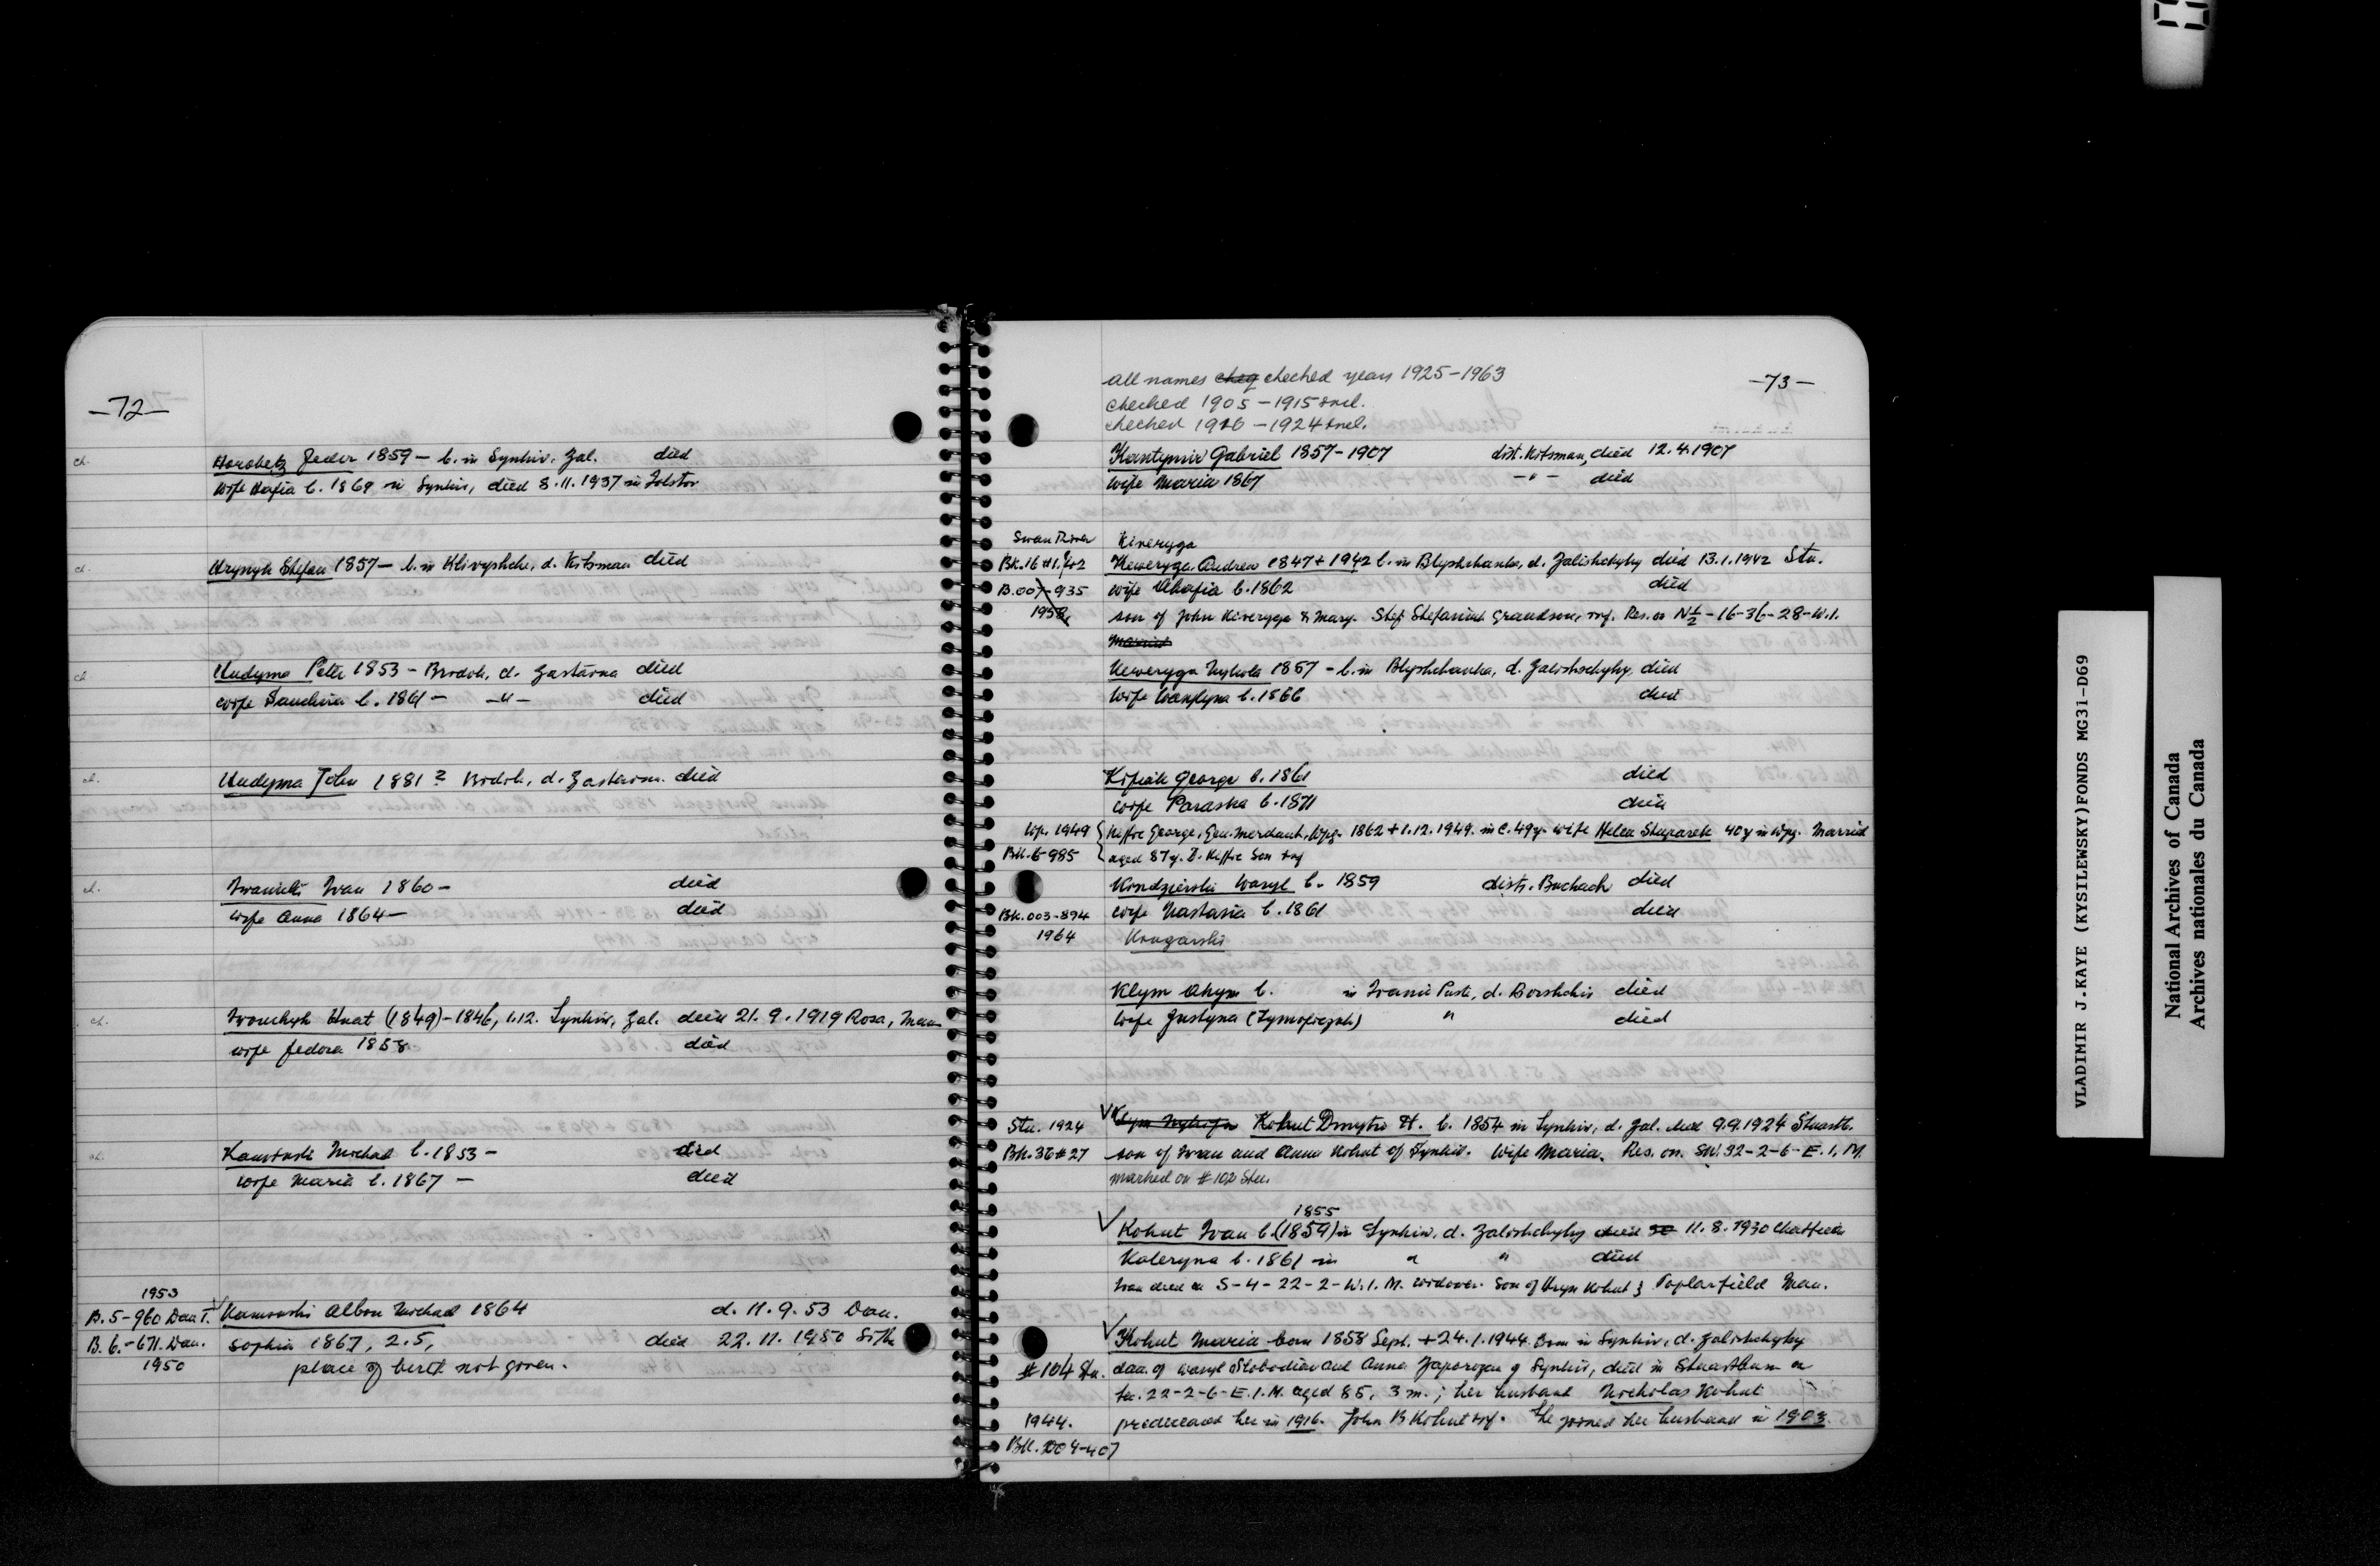 -72-
ch. Horobetz Fedor 1859 - b. in Synkiv, Zal. died
wife Hafia b. 1869 in Synkiv, died 8.11.1937 in Tolstoi
ch. Hrynyk Stefan 1857 - b. in Klivyshche, d. Kitsman died
ch. Hudyma Peter 1853 - Brodok, d. Zastavna died
wife b. 1861 - -"- died
ch. Hudyma John 1881? Brodok, d. Zastavna. died
ch. Ivan 1860 - died
wife Anna 1864 - died
ch. Hnat (1849) - 1846, 1.12. Synkiv, Zal. died 21.9.1919 Rosa, Man.
wife Fedora 1858 died
ch. Michael b. 1853 - died
wife Maria b. 1867 - died
1953
B. 5-960 Dau. Albon Michael 1864 d. 11.9.53 Dau.
B. 6-671. Dau. Sophia 1867, 2.5, died 22.11.1950
1950
place of birth not given.
-73-
All names cheq checked years 1925-1963
checked 1905 - 1915 incl.
checked 1916 - 1924 incl.
Kantymir Gabriel 1857-1907 dist. Kitsman, died 12.4.1907
wife Maria 1867 -"- died
Swan River Kiveryga
Bk. 16 #1. Keweryga Andrew 1847 + 1942 b. in Blyshchanka, d. Zalishchyky died 13.1.1942 Stu.
B. 007-935 wife Ahafia b. 1862 died
1958 son of John Kiveryga & Mary. Stef Stefaniuk Grandson, inf. Res. on N½-16-36-28-W.1.
Married
Keweryga Mykola 1857 - b. in Blyshchanka, d. Zalishchyky, died
wife b. 1866 died
Kifiak George b. 1861 died
wife Paraska b. 1871 died
Wp. 1949 George, Gen. Merchant, Wpg. 1862 + 1.12.1949. in C. 49y. wife Helen Shyparek 40 y in Wpg. Married
Bk. 6-985 aged 87 y. Son inf
Kondzierski Wasyl b. 1859 distr. Buchach died
Bk. 003-894 wife Nastasia b. 1861 died
1964 Kongarski
Klym b. in Ivanie Puste, d. Borshchiv died
wife Justyna " died
Stu. 1924 Kohut Dmytro H. b. 1854 in Synkiv, d. Zal. died 9.9.1924 Stuartb.
Bk. 36 #27 son of Ivan and Anna Kohut of Synkiv. Wife Maria. Res. on. SW. 32-2-6-E.1.M.
marked on #102 Stu.
1855
Kohut Ivan b. (1859) in Synkiv, d. Zalishchyky died 11.8.1930 Chatfield
Kateryna b. 1861 in " " died
Ivan died on S-4-22-2-W.1.M. widower. Son of Hryn Kohut & Poplarfield Man.
Kohut Maria born 1858 Sept. + 24.1.1944. Born in Synkiv, d. Zalishchyky
#104 Stu. dau. of Wasyl Slobodian and Anna Zaporozan of Synkiv, died in Stuartburn on
Sec. 22-2-6-E.1.M. aged 85, 3 m.; her husband Nicholas Kohut
1944. predeceased her in 1916. John B Kohut inf. She joined her husband in 1903.
Bk. 004-407
VLADIMIR J.KAYE (KYSILEWSKY)FONDS MG31-D69
National Archives of Canada
Archives nationales du Canada